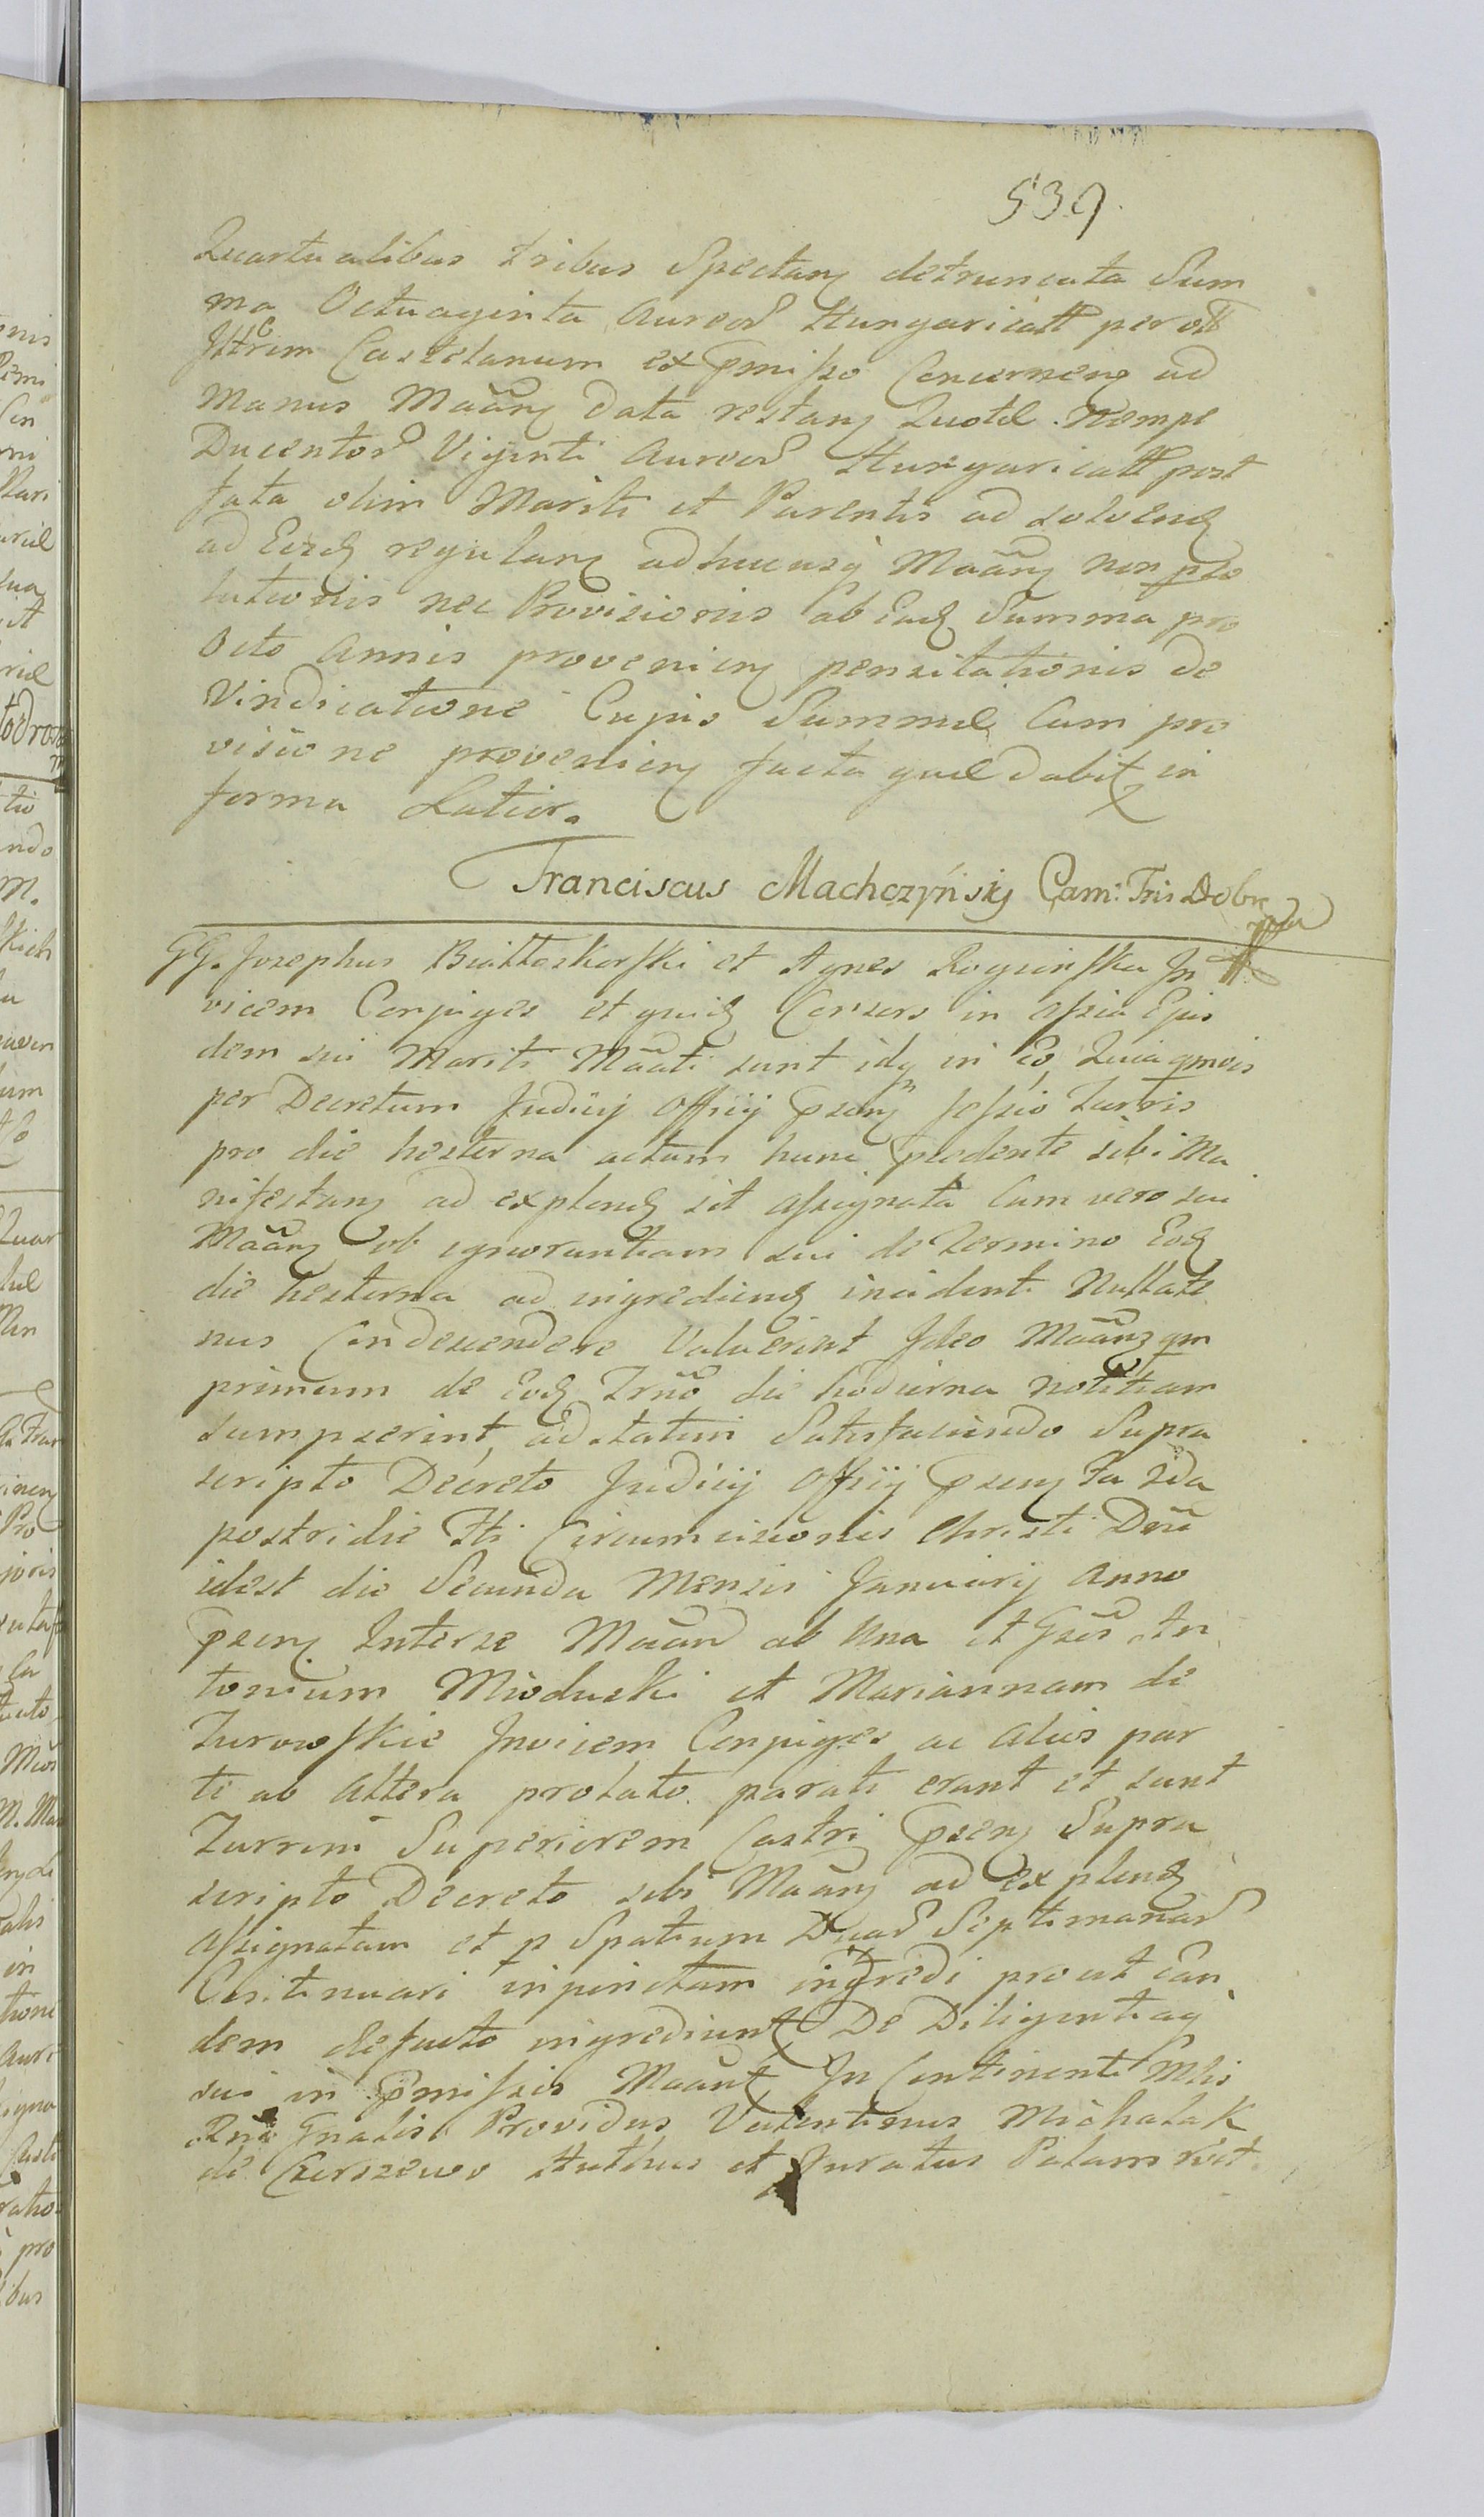 539.
Quartualibus tribus Spectan detruncata Sum
ma Octuaginta Aureor Hungaricall per oll
Illrem Castelanum ex Pmisso Concernen ad
Manus Mãan data restan Quotæ Nempe
Ducentor Viginti Aureor Hungaricall post
fata olim Mariti et Parentis ad solvend
ad Eosd regulan adhucusq Mãan non pso
lutionis nec Provisionis ab Ead Summa pro
Octo Annis provenien pensitationis de
Vindicatione Cujus Summæ Cum pro
visione provenien facta quæ dabit in
forma Latior.
Franciscus Machczyńsky Cam: Tris Dobr
GG. Josephus Białłoskorski et Agnes Roguinska In
vicem Conjuges et quid Consors in assia Ejus
dem sui Mariti Mãati sunt idq in Eo, Quia qmvis
per Decretum Judicij Officij Psen sessio Turris
pro die hesterna actum hunc Pcedente sibi Ma
nifestan ad explend sit Assignata Cum vero sui
Mãan ob ignorantiam sui de Termino Eod
die hesterna ad ingrediend incidenti Nullate
nus Condescendere Valuerint Ideo Mãan qm
primum de Eod Trno die hodierna notitiam
sumpserint, ad statim Satisfaciendo Supra
scripto Decreto Judicij Officij Psen Fa 2da
postridie Fti Circumcisionis Christi Dni
idest die Secunda Mensis Januarij Anno
Psen Inter se Mãan ab Una et Gsos An
tonium Mioduski et Mariannam de
Zurowskie Invicem Conjuges ac Alios par
te ab Altera prolato parati erant et sunt
Turrim Superiorem Castri Psen Supra
scripto Decreto sibi Mãan ad explend
Assignatam et p Spatium Duar Septimanar
Continuari injunctam ingredi prout ean
dem defacto ingrediunt De Diligentiaq
sui in Pmissis Mãant In Continenti Mlis
Rni Gnalis Providus Valentinus Michalak
de Czerszewo Authus et Juratus Palam rcit